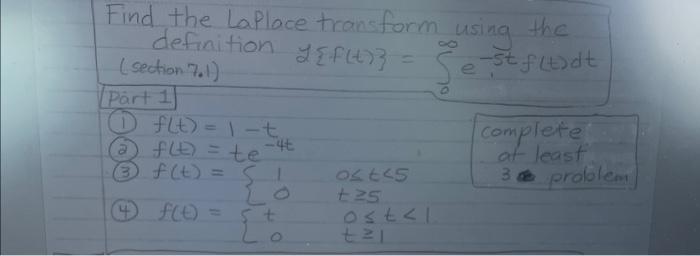 Find the LaPlace transform using the
definition ℒ{f(t)} = ∫₀^∞ e^-st f(t)dt
(section 7.1)
Part 1
① f(t) = 1-t
② f(t) = te^-4t
③ f(t) = { 1 0≤t<5
0 t≥5
④ f(t) = { t 0≤t<1
0 t≥1
complete
at least
3 problem